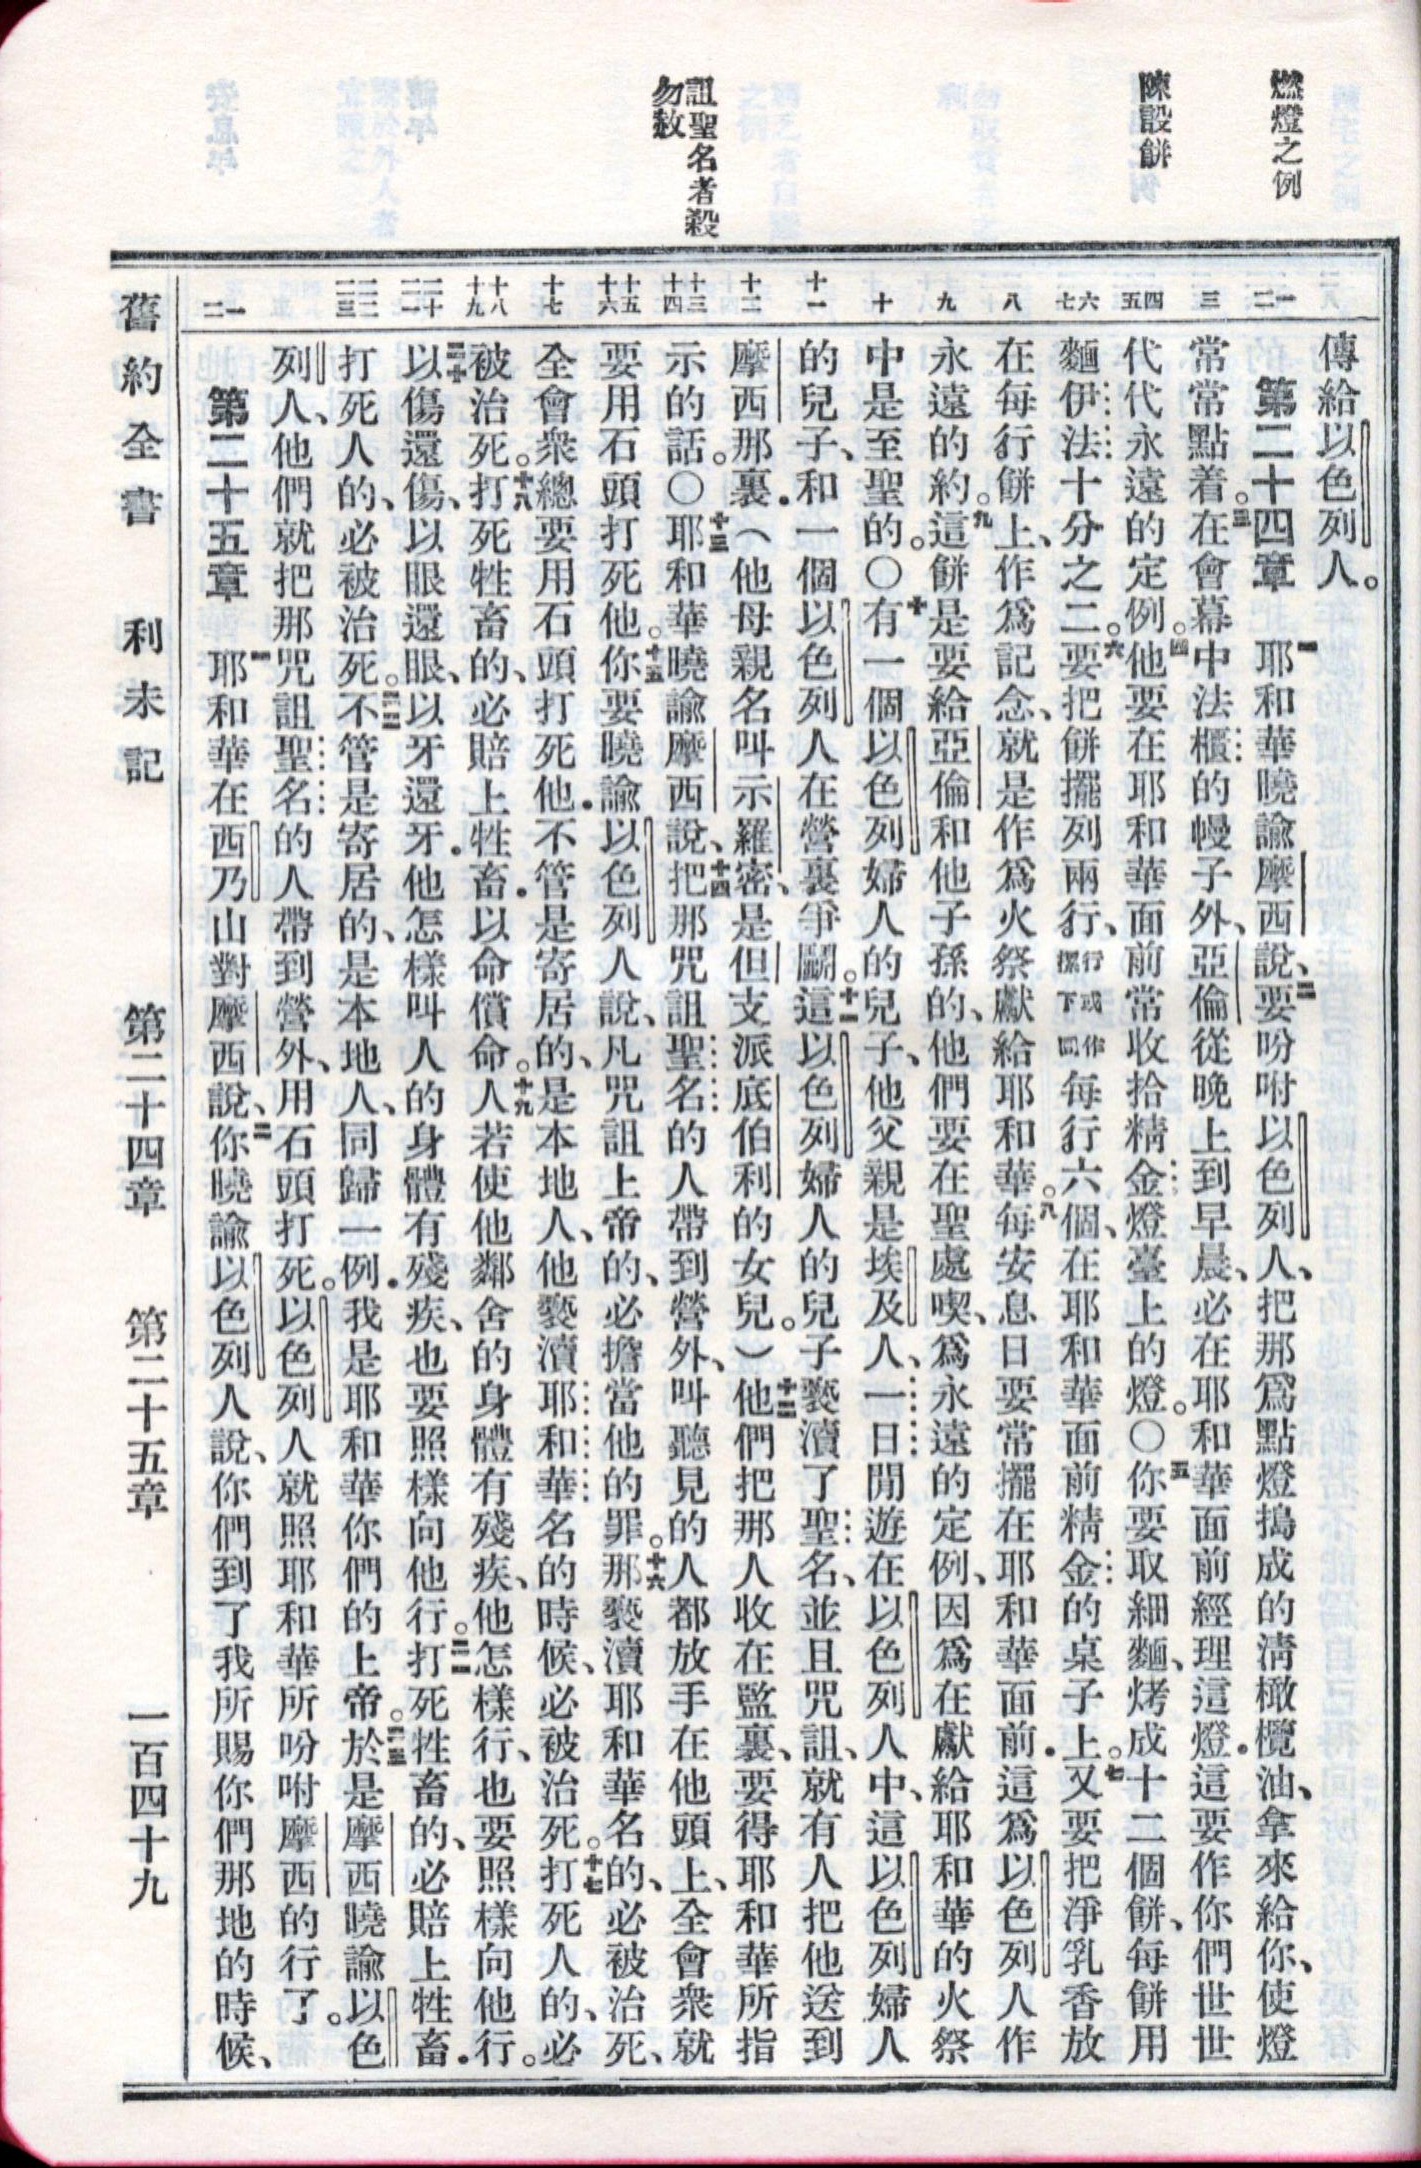 燃燈之例
陳設餅
詛聖名者殺
勿赦
傳給以色列人。
第二十四章 一耶和華曉諭摩西說、二要吩咐以色列人、把那爲點燈搗成的淸橄欖油、拿來給你、使燈
常常點着。三在會幕中法櫃的幔子外、亞倫從晚上到早晨、必在耶和華面前經理這燈．這要作你們世世
代代永遠的定例。四他要在耶和華面前常收拾精金燈臺上的燈。○五你要取細麵、烤成十二個餅、每餅用
麵伊法十分之二。六要把餅擺列兩行、行或作摞下同每行六個、在耶和華面前精金的桌子上。七又要把淨乳香放
在每行餅上、作爲記念、就是作爲火祭獻給耶和華。八每安息日要常擺在耶和華面前．這爲以色列人作
永遠的約。九這餅是要給亞倫和他子孫的、他們要在聖處喫、爲永遠的定例、因爲在獻給耶和華的火祭
中是至聖的。○十有一個以色列婦人的兒子、他父親是埃及人、一日閒遊在以色列人中、這以色列婦人
的兒子、和一個以色列人在營裏爭鬭。十一這以色列婦人的兒子褻瀆了聖名、並且咒詛、就有人把他送到
摩西那裏．（他母親名叫示羅密、是但支派底伯利的女兒。）十二他們把那人收在監裏、要得耶和華所指
示的話。○十三耶和華曉諭摩西說、十四把那咒詛聖名的人帶到營外、叫聽見的人都放手在他頭上、全會衆就
要用石頭打死他。十五你要曉諭以色列人說、凡咒詛上帝的、必擔當他的罪。十六那褻瀆耶和華名的、必被治死、
全會衆總要用石頭打死他．不管是寄居的、是本地人、他褻瀆耶和華名的時候、必被治死。十七打死人的、必
被治死。十八打死牲畜的、必賠上牲畜．以命償命。十九人若使他鄰舍的身體有殘疾、他怎樣行、也要照樣向他行。
二十以傷還傷、以眼還眼、以牙還牙．他怎樣叫人的身體有殘疾、也要照樣向他行。二一打死牲畜的、必賠上牲畜．
打死人的、必被治死。二二不管是寄居的、是本地人、同歸一例．我是耶和華你們的上帝。二三於是摩西曉諭以色
列人、他們就把那咒詛聖名的人帶到營外、用石頭打死。以色列人就照耶和華所吩咐摩西的行了。
第二十五章 一耶和華在西乃山對摩西說、二你曉諭以色列人說、你們到了我所賜你們那地的時候、
一
二
三
四
五
六
七
八
九
十
十一
十二
十三
十四
十五
十六
十七
十八
十九
二十
二一
二二
二三
一
二
舊約全書 利未記 第二十四章 第二十五章 一百四十九